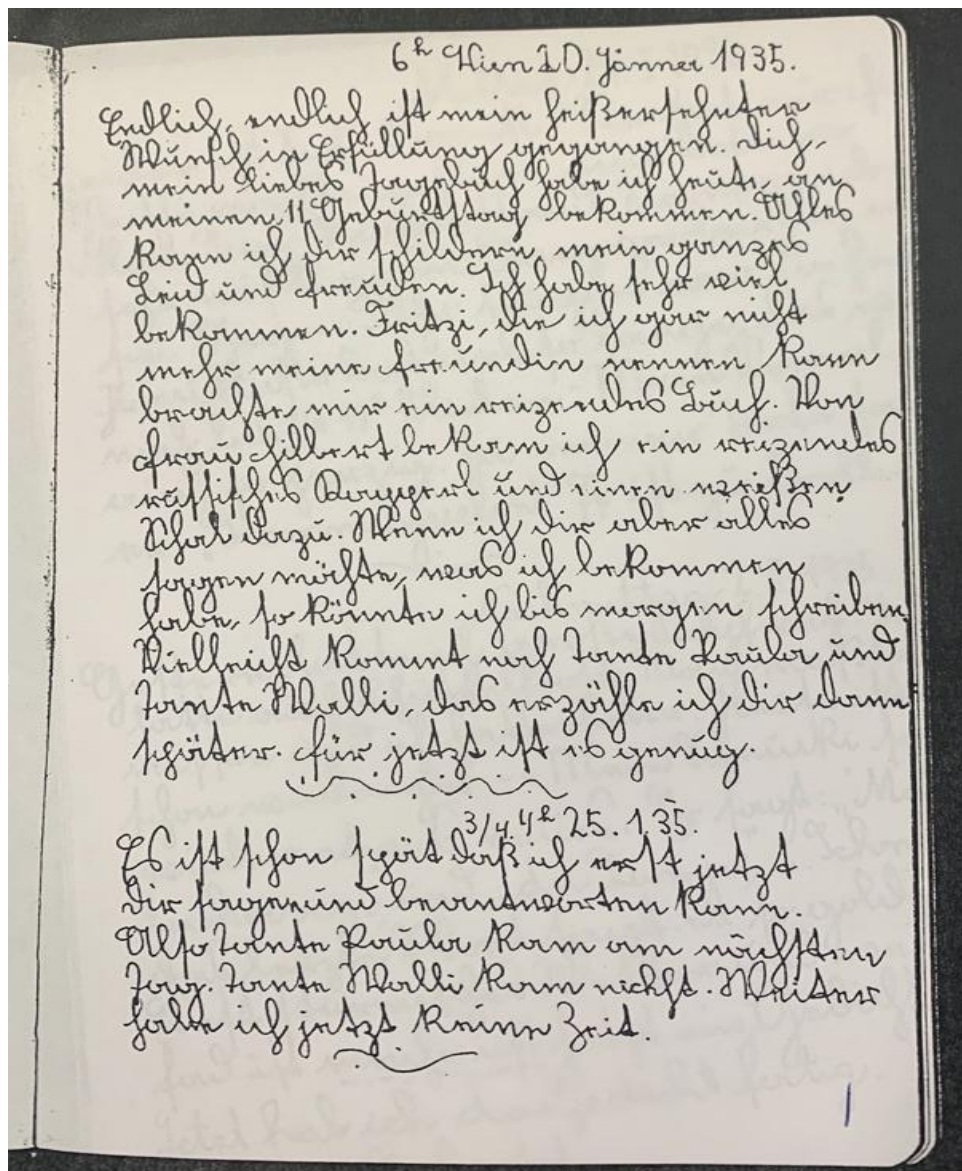 6ʰ Wien 20. Jänner 1935.
Endlich, endlich ist mein heißersehnter
Wunsch in Erfüllung gegangen. Dich,
mein liebes Tagebuch habe ich heute, an
meinen 11 Geburtstag bekommen. Alles
kann ich dir schildern, mein ganzes
Leid und Freuden. Ich habe sehr viel
bekommen. Fritzi, die ich gar nicht
mehr meine Freundin nennen kann
brachte mir ein reizendes Buch. Von
Frau Hillert bekam ich ein reizendes
russisches Kapperl und einen weißen
Schal dazu. Wenn ich dir aber alles
sagen möchte, was ich bekommen
habe, so könnte ich bis morgen schreiben.
Vielleicht kommt noch Tante Paula und
Tante Walli, das erzähle ich dir dann
später. Für jetzt ist es genug.
3/4 4ʰ 25. 1 35.
Es ist schon spät daß ich erst jetzt
dir sagen und beantworten kann.
Also Tante Paula kam am nächsten
Tag. Tante Walli kam nicht. Weiter
habe ich jetzt keine Zeit.
1